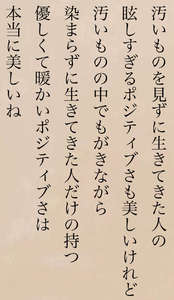 汚いものを見ずに生きてきた人の
眩しすぎるポジティブさも美しいけれど
汚いものの中でもがきながら
染まらずに生きてきた人だけの持つ
優しくて暖かいポジティブさは
本当に美しいね